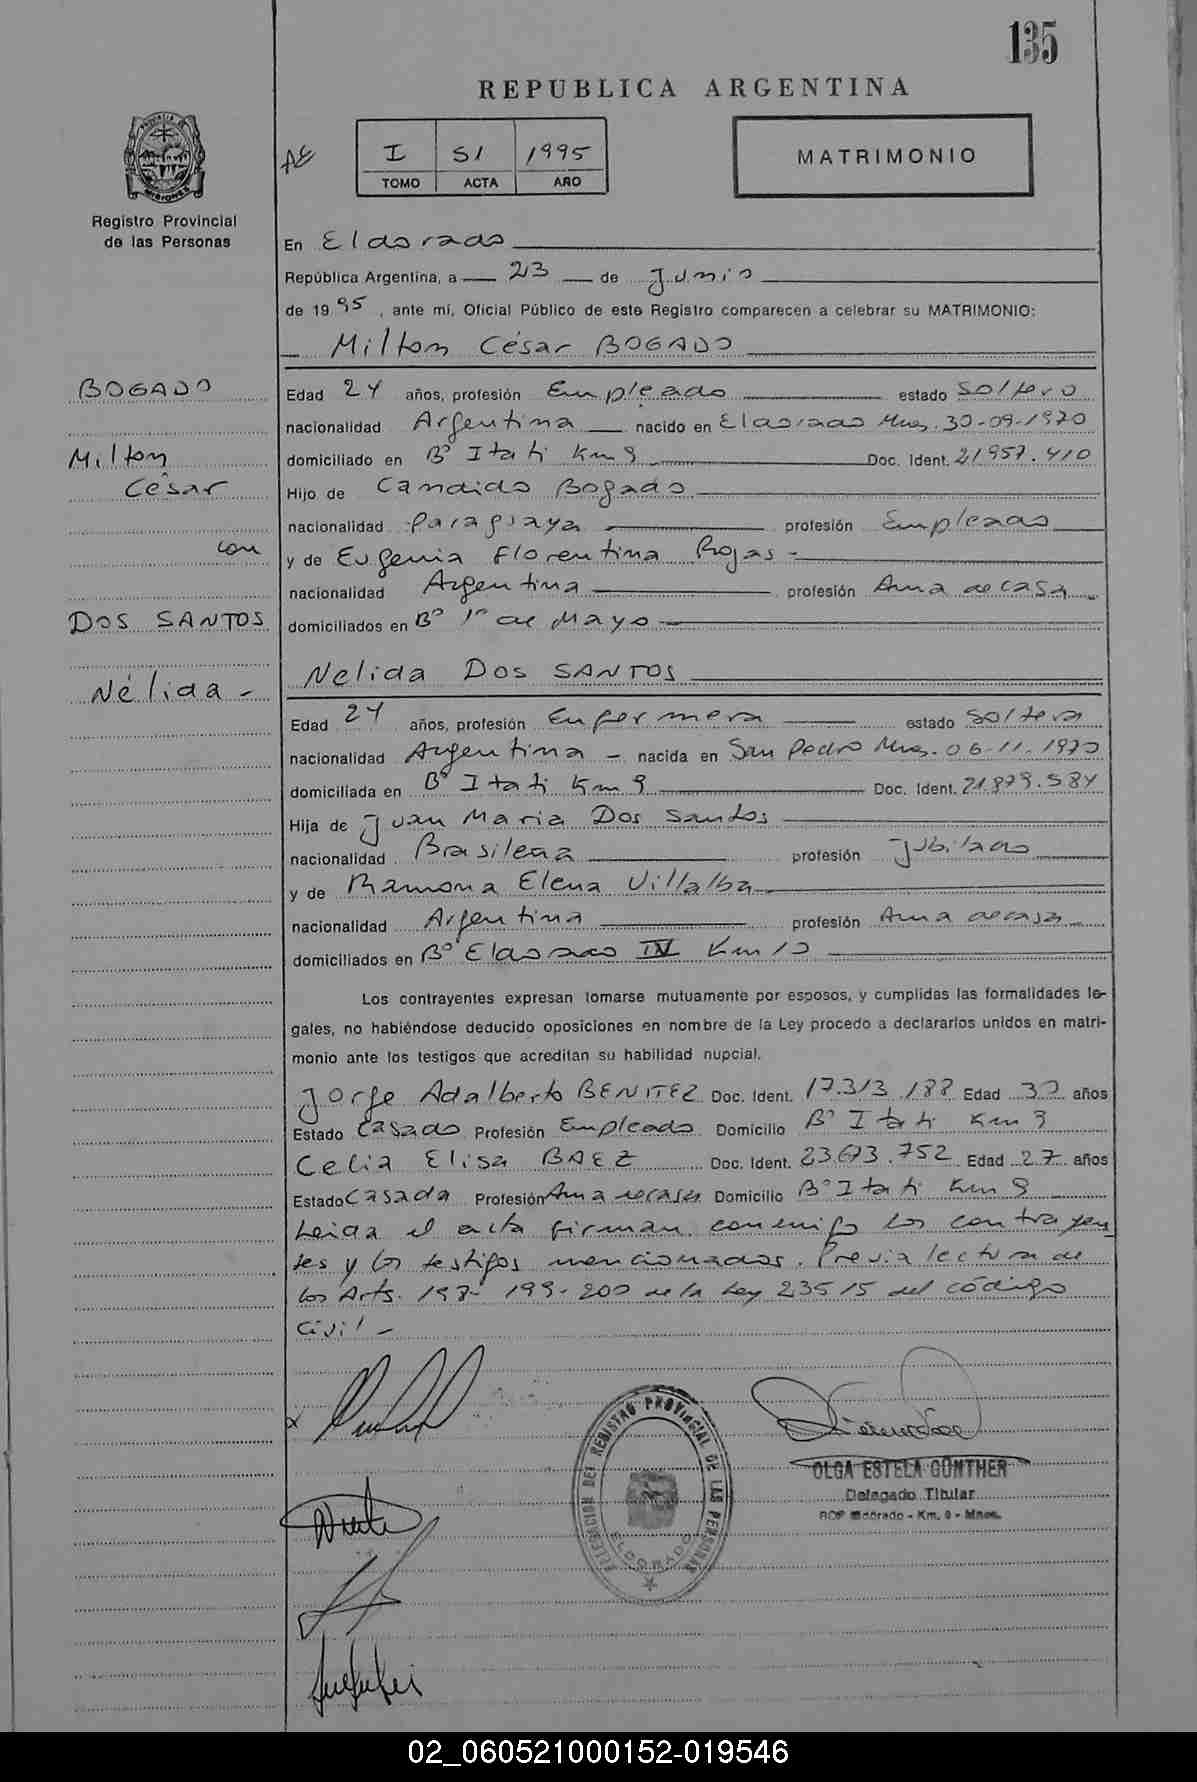 135
REPUBLICA ARGENTINA
I 51 1995
TOMO ACTA AÑO
MATRIMONIO
Registro Provincial
de las Personas
En Eldorado
República Argentina, a 23 de Junio
de 1995, ante mí, Oficial Público de este Registro comparecen a celebrar su MATRIMONIO:
Milton César BOGADO
BOGADO
Milton
César
con
DOS SANTOS
Nélida -
Edad 24 años, profesión Empleado estado Soltero
nacionalidad Argentina nacido en Eldorado Mnes. 30-09-1970
domiciliado en B° Itatí Km 9 Doc. Ident. 21.957.410
Hijo de Candido Bogado
nacionalidad Paraguaya profesión Empleado
y de Eugenia Florentina Rojas -
nacionalidad Argentina profesión Ama de casa
domiciliados en B° 1° de Mayo
Nelida DOS SANTOS
Edad 24 años, profesión Enfermera estado Soltera
nacionalidad Argentina - nacida en San Pedro Mnes. 06-11-1970
domiciliada en B° Itatí Km 9 Doc. Ident. 21.879.584
Hija de Juan Maria Dos Santos
nacionalidad Brasilera profesión Jubilado
y de Ramona Elena Villalba
nacionalidad Argentina profesión Ama de casa
domiciliados en B° Eldorado IV Km 10
Los contrayentes expresan tomarse mutuamente por esposos, y cumplidas las formalidades le-
gales, no habiéndose deducido oposiciones en nombre de la Ley procedo a declararlos unidos en matri-
monio ante los testigos que acreditan su habilidad nupcial.
Jorge Adalberto BENITEZ Doc. Ident. 17.313.188 Edad 30 años
Estado Casado Profesión Empleado Domicilio B° Itatí Km 9
Celia Elisa BAEZ Doc. Ident. 23.673.752 Edad 27 años
Estado Casada Profesión Ama de casa Domicilio B° Itatí Km 9
Leida el acta firman conmigo los contrayen
tes y los testigos mencionados. Previa lectura de
los Arts. 198- 199-200 de la Ley 23515 del código
civil -
DELEGACION DEL REGISTRO PROVINCIAL DE LAS PERSONAS
ELDORADO
OLGA ESTELA GÜNTHER
Delegado Titular
RDP Eldorado - Km. 9 - Mnes.
02_060521000152-019546